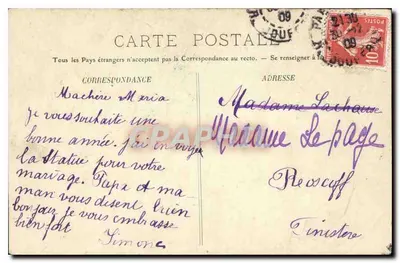 CARTE POSTALE
Tous les Pays étrangers n'acceptent pas la Correspondance au recto. — Se renseigner à
CORRESPONDANCE
ADRESSE
Ma chère Meria
je vous souhaite une
bonne année. j'ai en
la Statue pour votre
mariage. Papa et ma-
man vous disent bien
bonjour je vous embrasse
bien fort
Simone
Madame
Madame Lepage
Roscoff
Finistère
09
10
CPARAMA